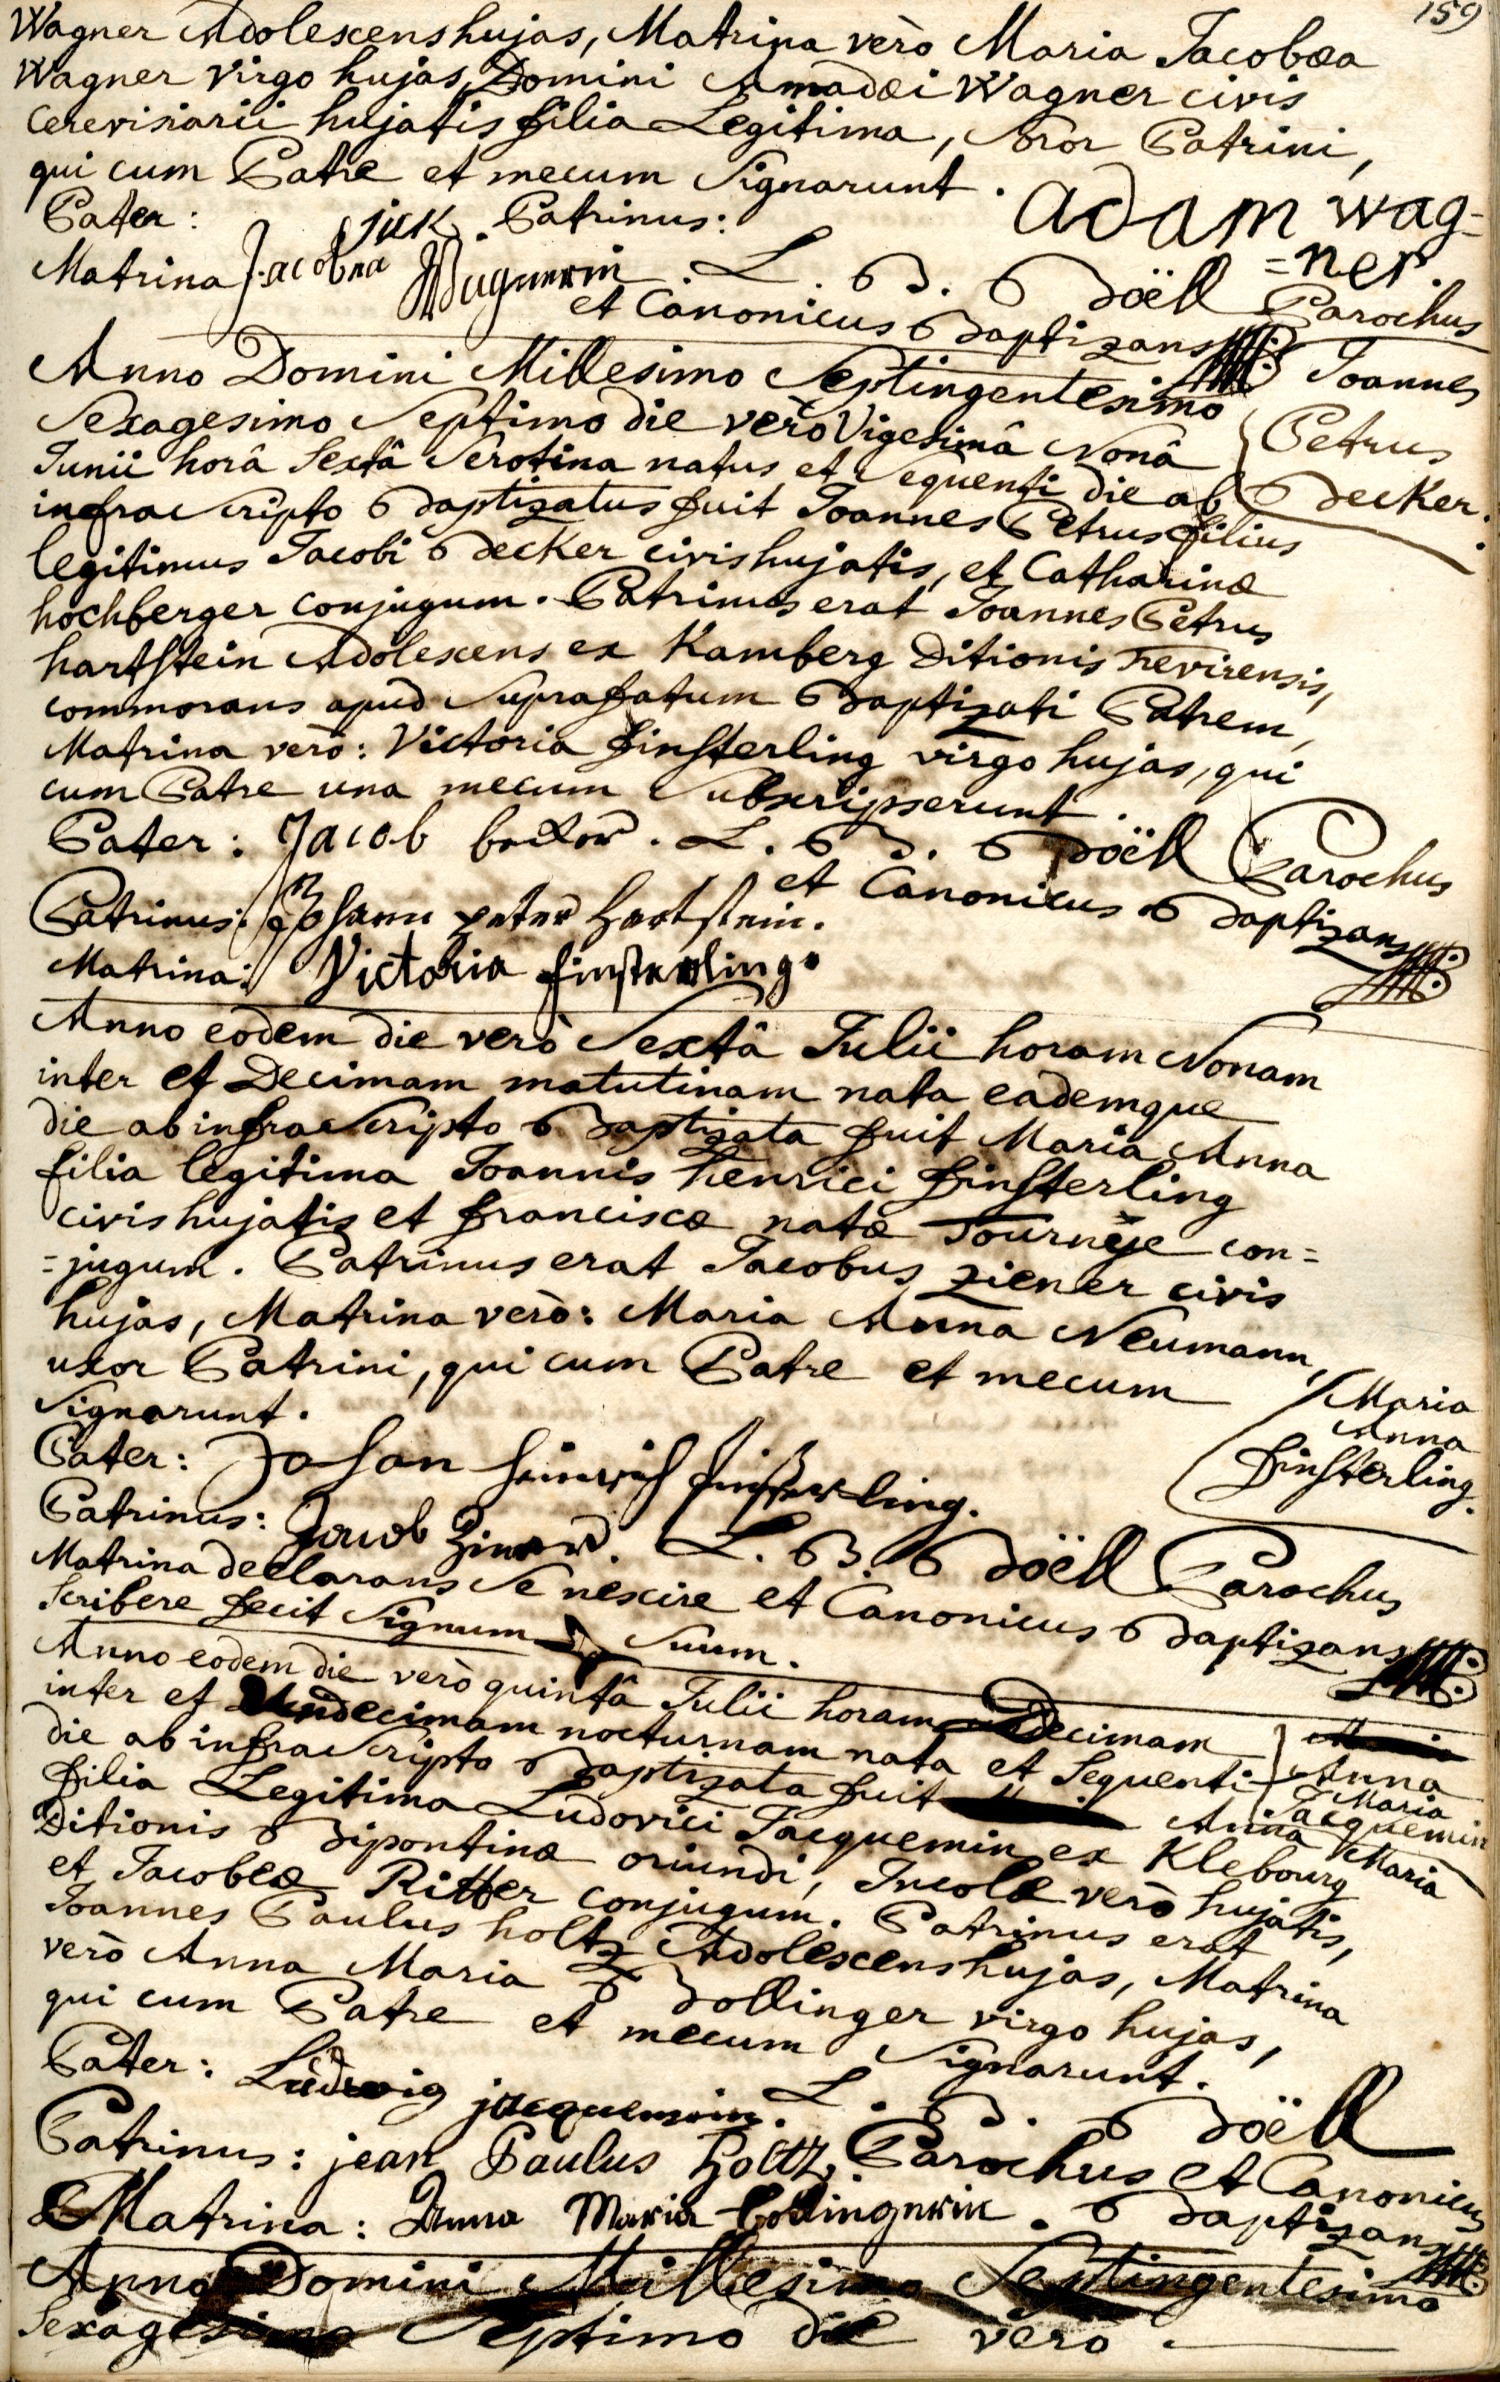 159
Wagner Adolescens hujas, Matrina verò Maria Jacobæa
Wagner virgo hujas, Domini Amadæi Wagner civis
Cerevisiarii hujatis filia Legitima, Soror Patrini,
qui cum Patre et mecum Signarunt.
Pater: Patrinus: adam wag=
=ner.
Matrina Jacobea Wagnerin. L. B. Böell Parochus
et Canonicus Baptizans
Anno Domini Millesimo Septingentesimo
Sexagesimo Septimo die verò Vigesimâ Nonâ
Junii horâ Sextâ Serotina natus et Sequenti die ab
infra Scripto Baptizatus fuit Joannes Petrus filius
legitimus Jacobi Becker civis hujatis, et Catharinæ
hochberger conjugum. Patrinus erat Joannes Petrus
hartstein Adolescens ex Kamberg Ditionis Trevirensis,
commorans apud Suprafatum Baptizati Patrem,
Matrina verò: Victoria finsterling virgo hujas, qui
cum Patre una mecum Subscripserunt.
Joannes
Petrus
Becker.
Pater: Jacob becker. L. B. Böell Parochus
et Canonicus Baptizans
Patrinus: Johann peter Hartstein.
Matrina: Victoria finsterling.
Anno eodem die verò Sextâ Julii horam Nonam
inter et Decimam matutinam nata eademque
die ab infra Scripto Baptizata fuit Maria Anna
filia legitima Joannis henrici finsterling
civis hujatis et franciscæ natæ Tourneÿe con=
=jugum. Patrinus erat Jacobus ziener civis
hujas, Matrina verò: Maria Anna Neumann,
uxor Patrini, qui cum Patre et mecum
Signarunt.
Maria
Anna
finsterling.
Pater: Johan Heinrich finsterling.
Patrinus: Jacob Ziner. L. B. Böell Parochus
Matrina declarans Se nescire et Canonicus Baptizans
Scribere fecit Signum Suum.
Anno eodem die verò quintâ Julii horam Decimam
inter et Undecimam nocturnam nata et Sequenti
die ab infra Scripto Baptizata fuit Anna Maria
filia Legitima Ludovici Jacquemin ex Klebourg
Ditionis Bipontinæ oriundi, Incolæ verò hujatis,
et Jacobeæ Ritter conjugum. Patrinus erat
Joannes Paulus holtz Adolescens hujas, Matrina
verò Anna Maria Bollinger virgo hujas,
qui cum Patre et mecum Signarunt.
Anna
Maria
Jacquemin
Pater: Ludwig jacquemin. L. B. Böell
Patrinus: jean Paulus Holtz. Parochus et Canonicus
Matrina: Anna Maria bollingerin. Baptizans
Anno Domini Millesimo Septingentesimo
Sexagesimo Septimo die vero